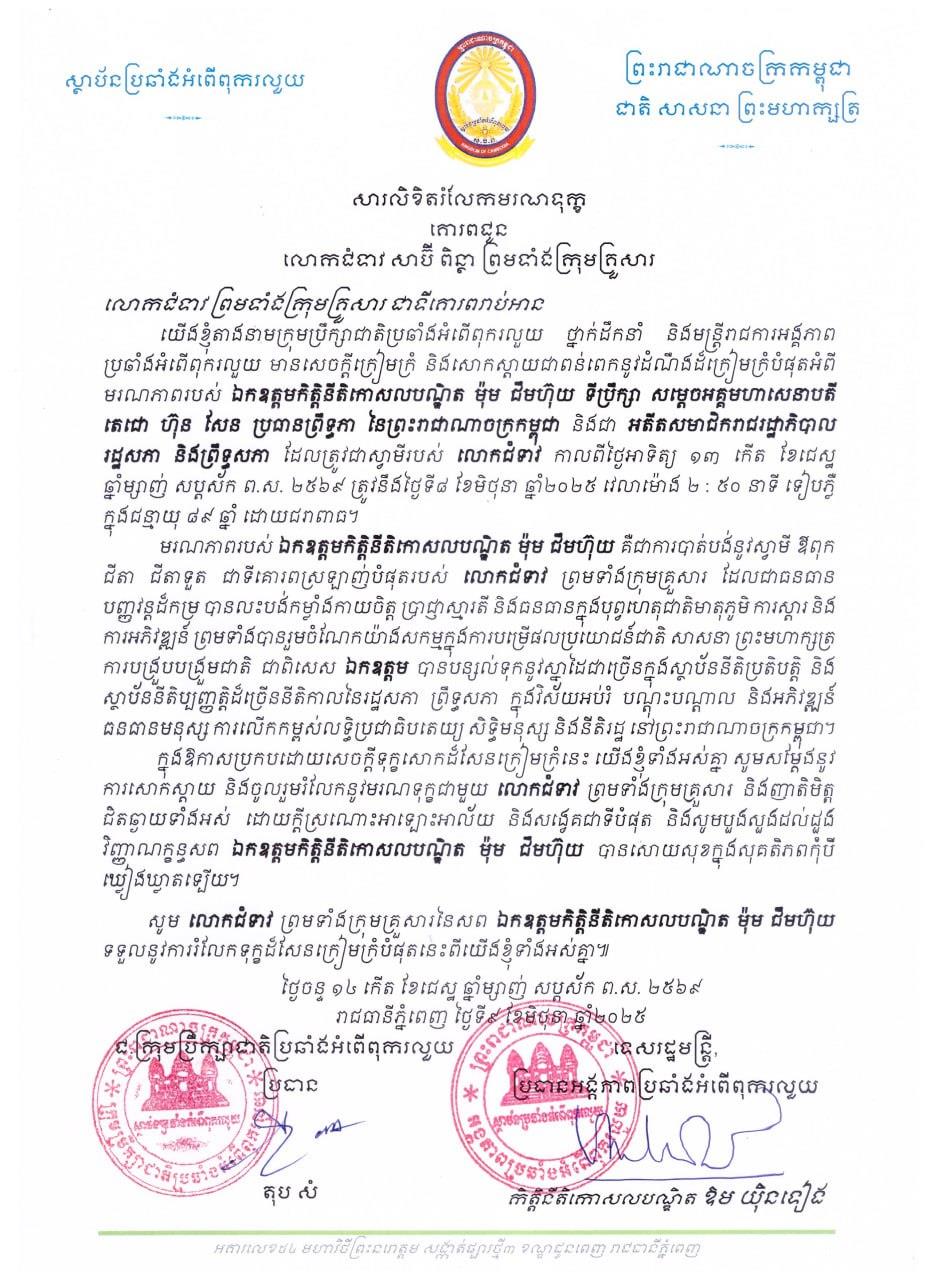 ព្រះរាជាណាចក្រកម្ពុជា
ជាតិ សាសនា ព្រះមហាក្សត្រ
ស្ថាប័នប្រឆាំងអំពើពុករលួយ
KINGDOM OF CAMBODIA
សារលិខិតរំលែកមរណទុក្ខ
គោរពជូន
លោកជំទាវ សាប៊ី ពិន្ថា ព្រមទាំងក្រុមគ្រួសារ
លោកជំទាវ ព្រមទាំងក្រុមគ្រួសារ ជាទីគោរពរាប់អាន
យើងខ្ញុំតាងនាមក្រុមប្រឹក្សាជាតិប្រឆាំងអំពើពុករលួយ ថ្នាក់ដឹកនាំ និងមន្ត្រីរាជការអង្គភាព
ប្រឆាំងអំពើពុករលួយ មានសេចក្តីក្រៀមក្រំ និងសោកស្តាយជាពន់ពេកនូវដំណឹងដ៏ក្រៀមក្រំបំផុតអំពី
មរណភាពរបស់ ឯកឧត្តមកិត្តិនីតិកោសលបណ្ឌិត ម៉ុម ជឹមហ៊ុយ ទីប្រឹក្សា សម្តេចអគ្គមហាសេនាបតី
តេជោ ហ៊ុន សែន ប្រធានព្រឹទ្ធភា នៃព្រះរាជាណាចក្រកម្ពុជា និងជា អតីតសមាជិករាជរដ្ឋាភិបាល
រដ្ឋសភា និងព្រឹទ្ធសភា ដែលត្រូវជាស្វាមីរបស់ លោកជំទាវ កាលពីថ្ងៃអាទិត្យ ១៣ កើត ខែជេស្ឋ
ឆ្នាំម្សាញ់ សប្តស័ក ព.ស. ២៥៦៩ ត្រូវនឹងថ្ងៃទី៨ ខែមិថុនា ឆ្នាំ២០២៥ វេលាម៉ោង ២ : ៥០ នាទី ទៀបភ្លឺ
ក្នុងជន្មាយុ ៨៩ ឆ្នាំ ដោយជរាពាធ។
មរណភាពរបស់ ឯកឧត្តមកិត្តិនីតិកោសលបណ្ឌិត ម៉ុម ជឹមហ៊ុយ គឺជាការបាត់បង់នូវស្វាមី ឪពុក
ជីតា ជីតាទួត ជាទីគោរពស្រឡាញ់បំផុតរបស់ លោកជំទាវ ព្រមទាំងក្រុមគ្រួសារ ដែលជាធនធាន
បញ្ញវន្តដ៏កម្រ បានលះបង់កម្លាំងកាយចិត្ត ប្រាជ្ញាស្មារតី និងធនធានក្នុងបុព្វហេតុជាតិមាតុភូមិ ការស្តារ និង
ការអភិវឌ្ឍន៍ ព្រមទាំងបានរួមចំណែកយ៉ាងសកម្មក្នុងការបម្រើផលប្រយោជន៍ជាតិ សាសនា ព្រះមហាក្សត្រ
ការបង្រួបបង្រួមជាតិ ជាពិសេស ឯកឧត្តម បានបន្សល់ទុកនូវស្នាដៃជាច្រើនក្នុងស្ថាប័ននីតិប្រតិបត្តិ និង
ស្ថាប័ននីតិប្បញ្ញត្តិដ៏ច្រើននីតិកាលនៃរដ្ឋសភា ព្រឹទ្ធសភា ក្នុងវិស័យអប់រំ បណ្តុះបណ្តាល និងអភិវឌ្ឍន៍
ធនធានមនុស្ស ការលើកកម្ពស់លទ្ធិប្រជាធិបតេយ្យ សិទ្ធិមនុស្ស និងនីតិរដ្ឋ នៅព្រះរាជាណាចក្រកម្ពុជា។
ក្នុងឱកាសប្រកបដោយសេចក្តីទុក្ខសោកដ៏សែនក្រៀមក្រំនេះ យើងខ្ញុំទាំងអស់គ្នា សូមសម្តែងនូវ
ការសោកស្តាយ និងចូលរួមរំលែកនូវមរណទុក្ខជាមួយ លោកជំទាវ ព្រមទាំងក្រុមគ្រួសារ និងញាតិមិត្ត
ជិតឆ្ងាយទាំងអស់ ដោយក្តីស្រណោះអាឡោះអាល័យ និងសង្វេគជាទីបំផុត និងសូមបួងសួងដល់ដួង
វិញ្ញាណក្ខន្ធសព ឯកឧត្តមកិត្តិនីតិកោសលបណ្ឌិត ម៉ុម ជឹមហ៊ុយ បានសោយសុខក្នុងសុគតិភពកុំបី
ឃ្លៀងឃ្លាតឡើយ។
សូម លោកជំទាវ ព្រមទាំងក្រុមគ្រួសារនៃសព ឯកឧត្តមកិត្តិនីតិកោសលបណ្ឌិត ម៉ុម ជឹមហ៊ុយ
ទទួលនូវការរំលែកទុក្ខដ៏សែនក្រៀមក្រំបំផុតនេះពីយើងខ្ញុំទាំងអស់គ្នា៕
ថ្ងៃចន្ទ ១៤ កើត ខែជេស្ឋ ឆ្នាំម្សាញ់ សប្តស័ក ព.ស. ២៥៦៩
រាជធានីភ្នំពេញ ថ្ងៃទី៩ ខែមិថុនា ឆ្នាំ២០២៥
ជ.ក្រុមប្រឹក្សាជាតិប្រឆាំងអំពើពុករលួយ
ប្រធាន
តុប សំ
ទេសរដ្ឋមន្ត្រី,
ប្រធានអង្គភាពប្រឆាំងអំពើពុករលួយ
កិត្តិនីតិកោសលបណ្ឌិត ឱម យ៉ិនទៀង
អគារលេខ៥៤ មហាវិថីព្រះនរោត្តម សង្កាត់ផ្សារថ្មី៣ ខណ្ឌដូនពេញ រាជធានីភ្នំពេញ